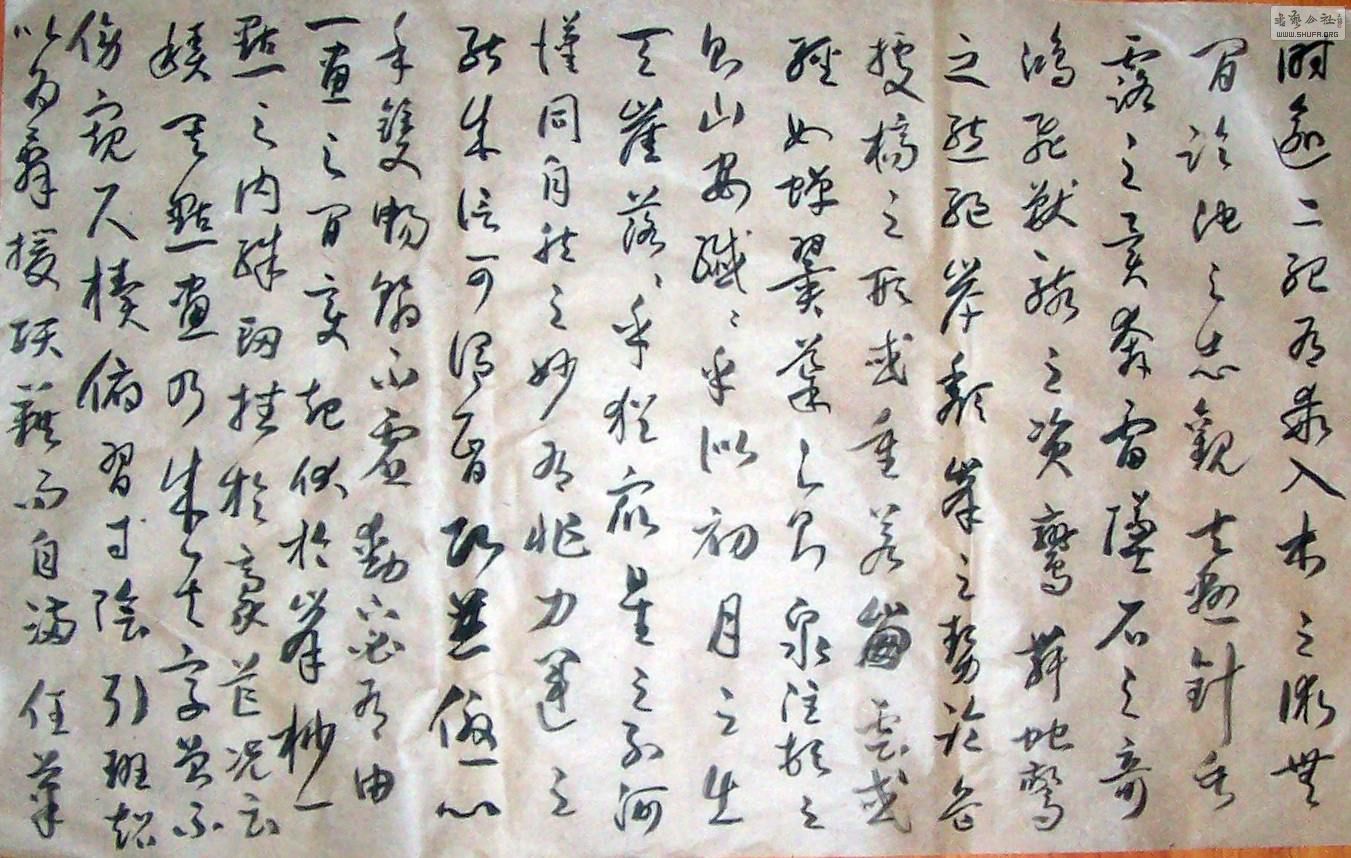 書藝公社
WWW.SHUFA.ORG
時逾二紀有乖入木之術無
間臨池之志觀夫懸針垂
露之異奔雷墜石之奇
鴻飛獸駭之資鸞舞蛇驚
之態絕岸頹峯之勢臨危
據槁之形或重若崩雲或
輕如蟬翼導之則泉注頓之
則山安纖々乎似初月之出
天崖落々乎猶眾星之列河
漢同自然之妙有非力運之
能成信可謂智巧兼優心
手雙暢翰不虛動下必有由
一畫之間變起伏於峯杪一
點之內殊衄挫於豪芒況云
積其點畫乃成其字曾不
傍窺尺櫝俯習寸陰引班超
以為辭援項籍而自滿任筆